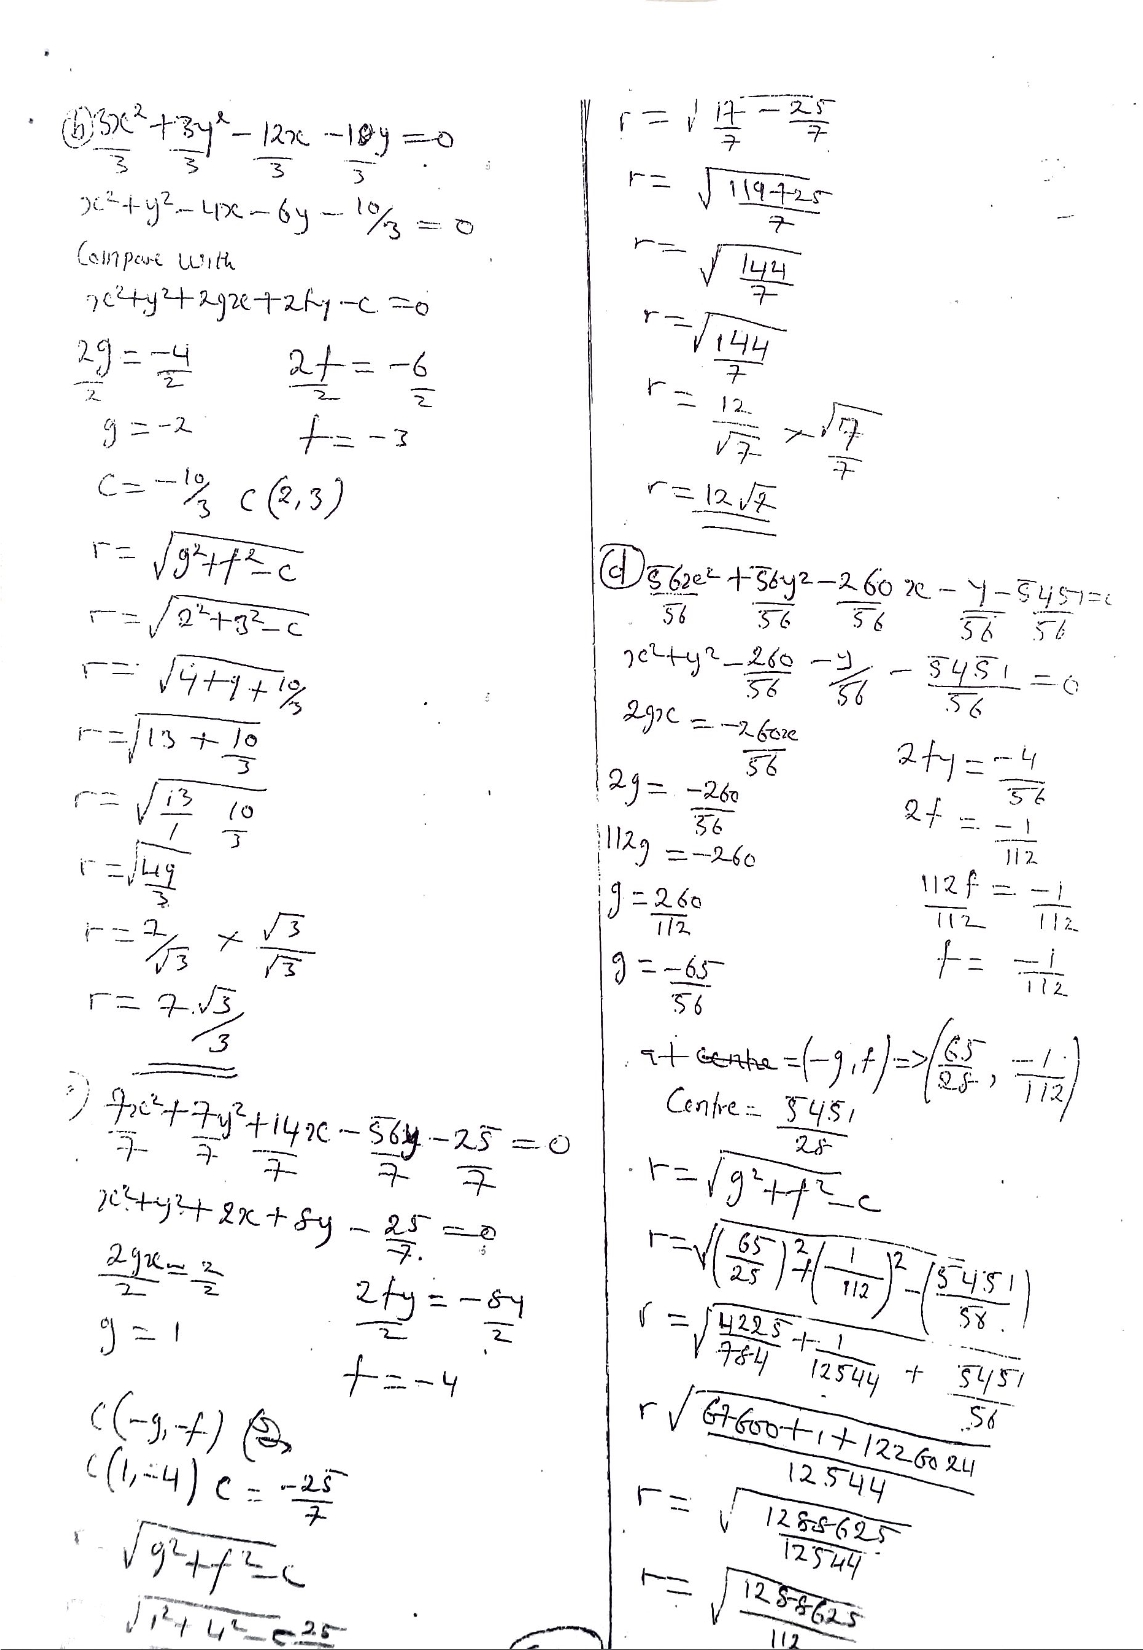 (b) 3x²/3 + 3y²/3 - 12x/3 - 18y/3 = 0
x² + y² - 4x - 6y - 10/3 = 0
Compare with
x² + y² + 2gx + 2fy - c = 0
2g/2 = -4/2    2f/2 = -6/2
g = -2    f = -3
C = -10/3  C(2,3)
r = √(g² + f² - c)
r = √(2² + 3² - c)
r = √(4 + 9 + 10/3)
r = √(13 + 10/3)
r = √(13/1  10/3)
r = √(49/3)
r = 7/√3 × √3/√3
r = 7.√3/3
) 7x²/7 + 7y²/7 + 14x/7 - 56y/7 - 25/7 = 0
x² + y² + 2x + 8y - 25/7 = 0
2gx/2 = 2/2    2fy/2 = -8y/2
g = 1
f = -4
C(-g, -f)
C(1, -4)  C = -25/7
√(g² + f² - c)
√(1² + 4² - 25
r = √(17/7 - 25/7)
r = √(119+25/7)
r = √(144/7)
r = √(144/7)
r = 12/√7 × √7/7
r = 12√7
(d) 56x²/56 + 56y²/56 - 260x/56 - y/56 - 5451/56 = 0
x² + y² - 260/56 - y/56 - 5451/56 = 0
2gx = -260x/56    2fy = -4/56
2g = -260/56    2f = -1/112
112g = -260
g = 260/112    112f/112 = -1/112
g = -65/56    f = -1/112
at centre = (-g, f) => (65/28, -1/112)
Centre = 5451/28
r = √(g² + f² - c)
r = √((65/25)² + (1/112)² - (5451/58))
r = √(4225/784 + 1/12544 + 5451/56)
r √(67600 + 1 + 1226024/12544)
r = √(1288625/12544)
r = √(1288625/112)